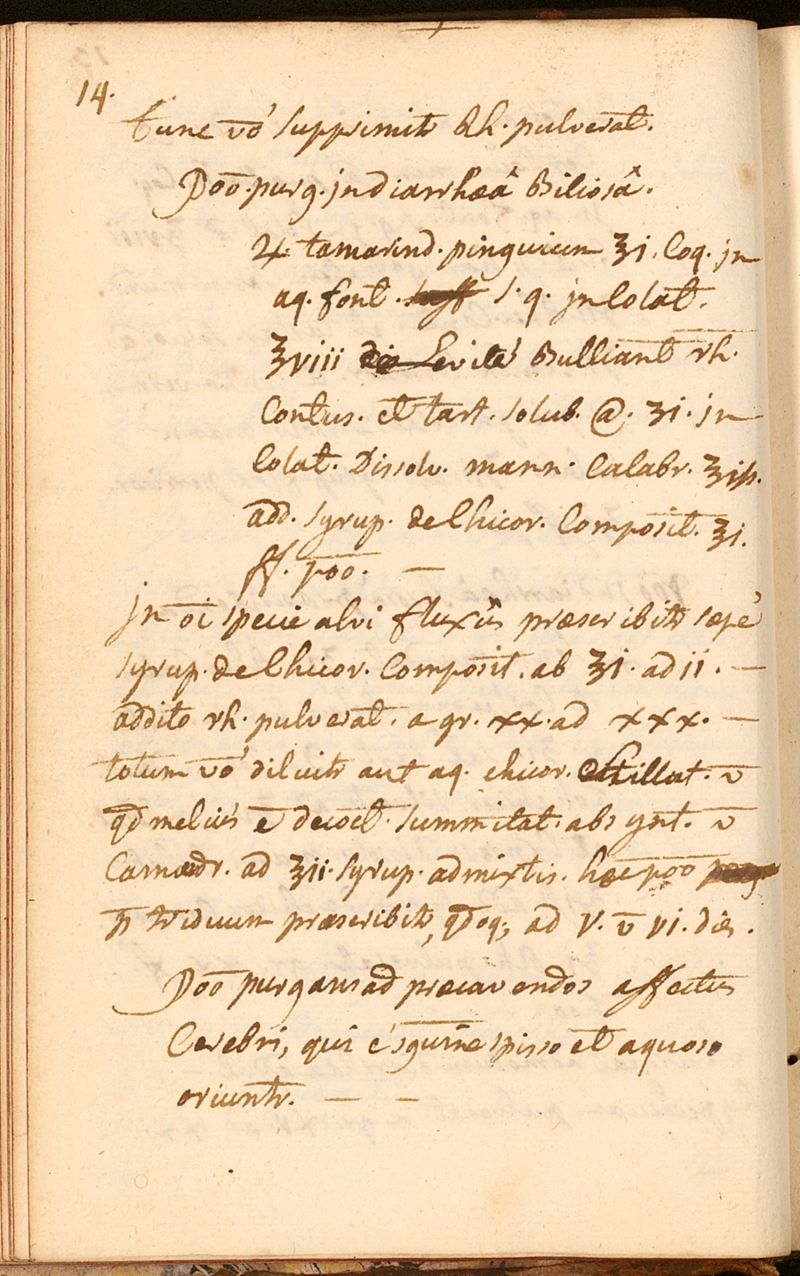 14.
tunc vō supprimitr Rh. pulverat.
Poō. purg. jn diarrhæâ Biliosâ.
♃ tamarind. pinguium ʒi. Coq. jn
aq. font. s. q. jn Colat.
ʒviii Levitè Bulliant rh.
Contus. et tart. solub. @. ʒi. jn
Colat. Dissolv. mann. Calabr. ʒiß.
add. syrup. de Chicor. Composit. ʒi.
ff. poō. —
jn oī specie alvi fluxûs præscribitr sæpè
syrup. de Chicor. Composit. ab ʒi. ad ii. —
addito rh. pulverat. a gr. xx. ad xxx. —
totum vō diluitr aut aq. chicor. stillat. v̄
qd melius ē decoct. summitat. absynt. v̄
Camædr. ad ʒii. syrup. admixtis. hæc poō
p̄ triduum præscribitr, qdoq; ad V. v̄ vi. diē.
Poō purgans ad præcavendos affectus
Cerebri, qui è sguine spisso et aquoso
oriuntr. — —